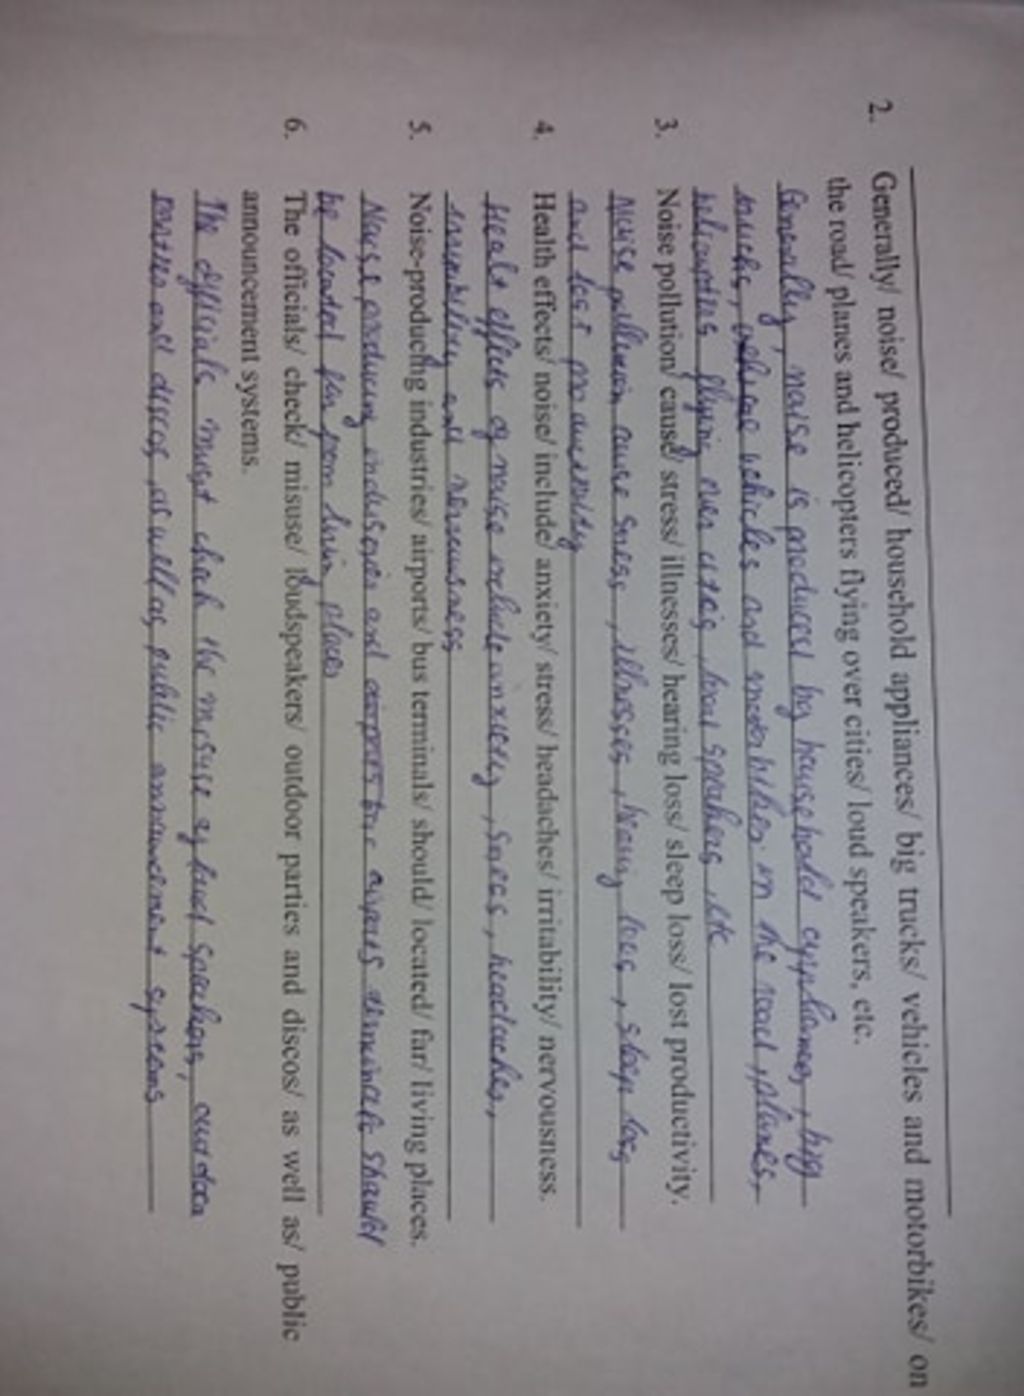 2. Generally/ noise/ produced/ household appliances/ big trucks/ vehicles and motorbikes/ on
the road/ planes and helicopters flying over cities/ loud speakers, etc.
Generally, noise is produced by household appliances, big
trucks, vehicles and motorbikes on the road, planes,
helicopters flying over cities, loud speakers, etc
3. Noise pollution/ cause/ stress/ illnesses/ hearing loss/ sleep loss/ lost productivity.
Noise pollution cause stress, illnesses, hearing loss, sleep loss
and lost productivity
4. Health effects/ noise/ include/ anxiety/ stress/ headaches/ irritability/ nervousness.
Healt effects of noise include anxiety, stress, headaches,
irritability and nervousness
5. Noise-producing industries/ airports/ bus terminals/ should/ located/ far/ living places.
Noise producing industries and airports bus terminals should
be located far from living places
6. The officials/ check/ misuse/ loudspeakers/ outdoor parties and discos/ as well as/ public
announcement systems.
The officials must check the misuse of loud speakers, outdoor
parties and discos, as well as public announcement systems